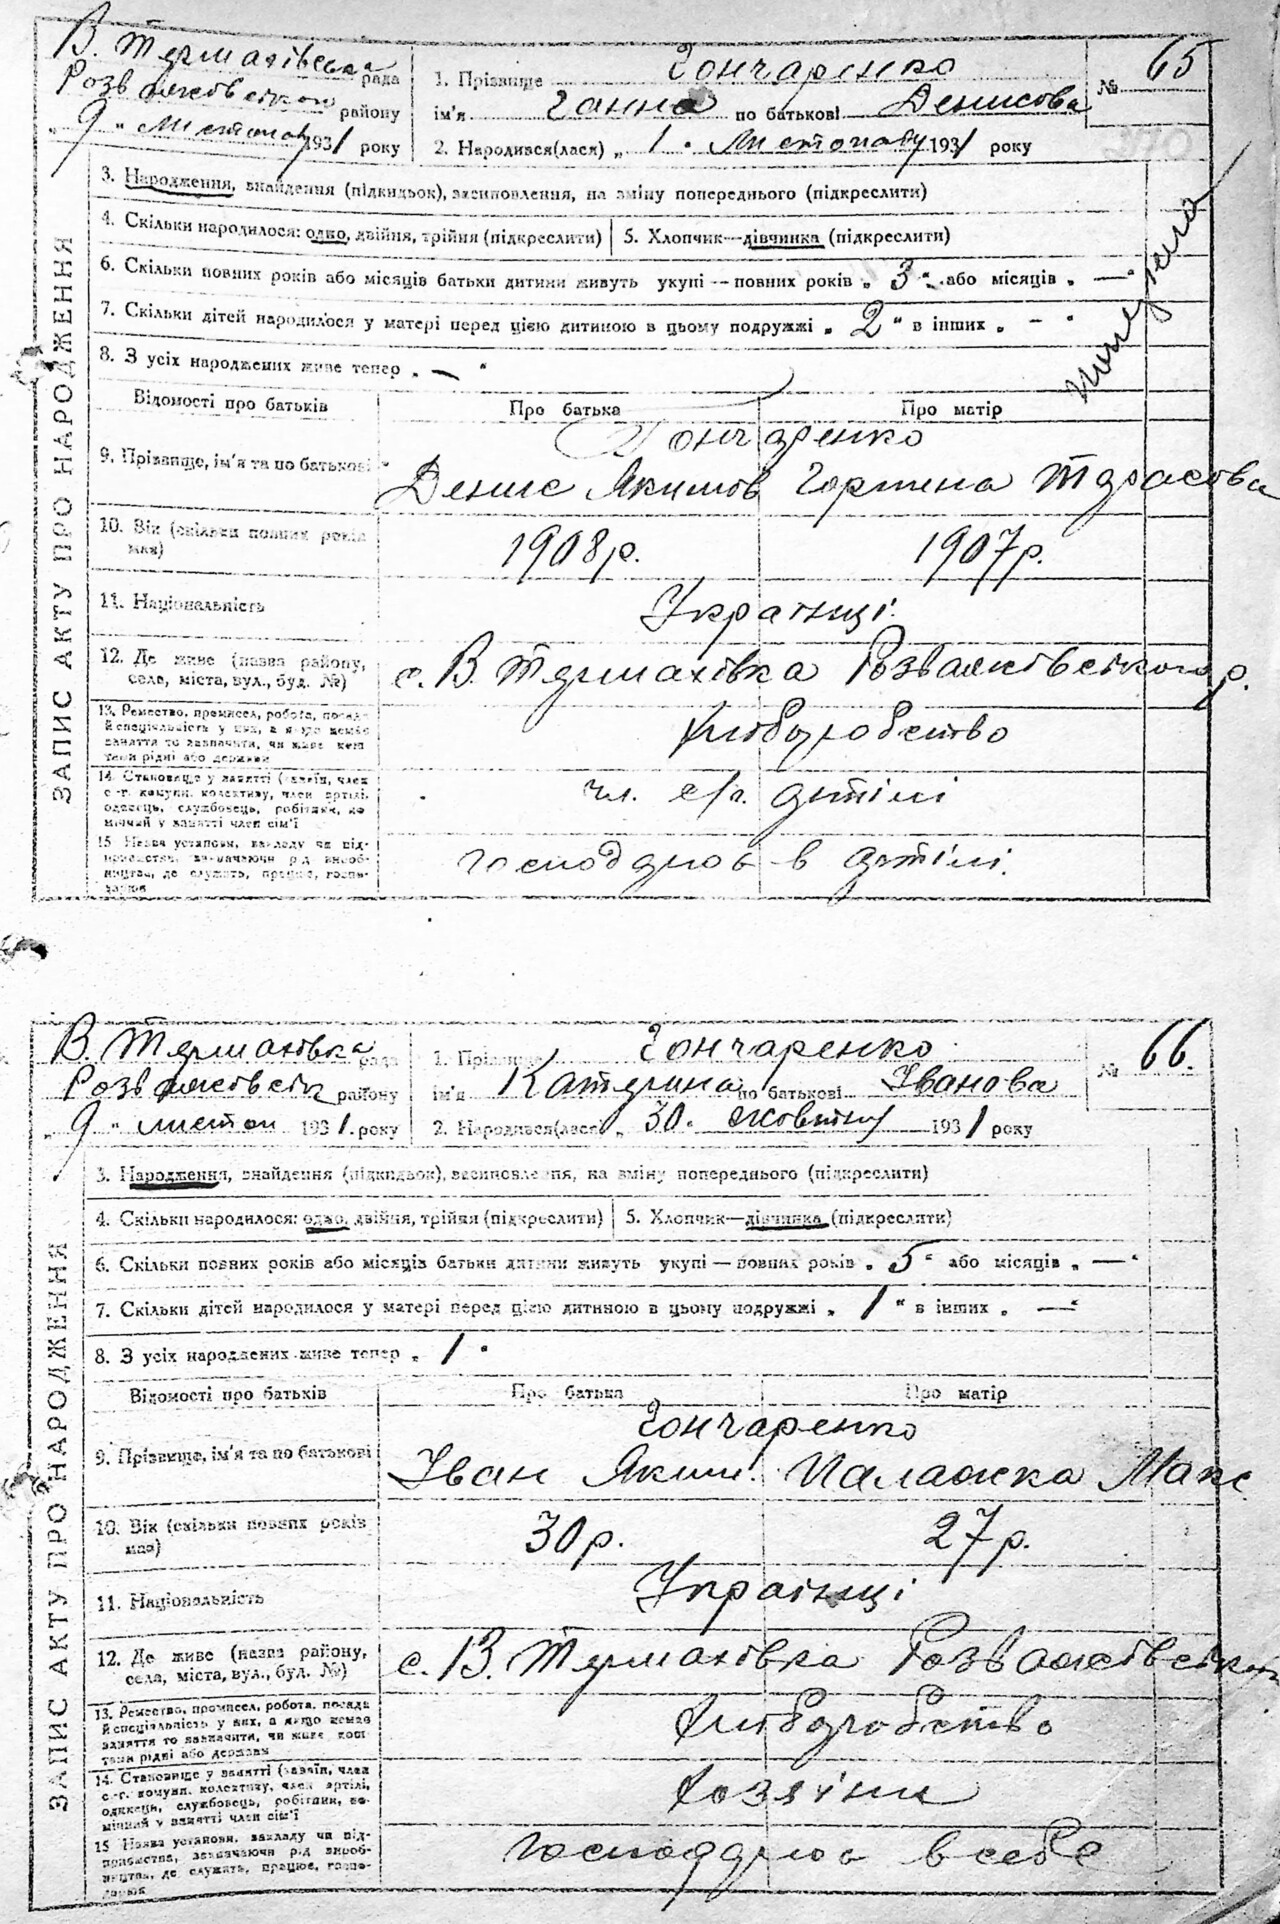 В. Термахівська рада
Розважівськом району
„ 9 " Листопад 1931 року
1. Прізвище Гончаренко
ім'я Ганна по батькові Денисова
2. Народився(лася) „ 1 . Листопаду 1931 року
№ 65
ЗАПИС АКТУ ПРО НАРОДЖЕННЯ
3. Народження, знайдення (підкидьок), всиновлення, на зміну попереднього (підкреслити)
4. Скільки народилося: одно, двійня, трійня (підкреслити) 5. Хлопчик—дівчинка (підкреслити)
6. Скільки повних років або місяців батьки дитини живуть укупі — повних років „ 3 " або місяців „ — "
7. Скільки дітей народилося у матері перед цією дитиною в цьому подружжі „ 2 " в інших „ — "
8. З усіх народжених живе тепер „ — "
Відомості про батьків Про батька Про матір
Гончаренко
9. Прізвище, ім'я та по батькові
Денис Якимов Горпина Тарасова
10. Вік (скільки повних років має) 1908р. 1907р.
11. Національність Українці
12. Де живе (назва району, села, міста, вул., буд. №) с. В. Термахівка Розважівського р.
13. Ремество, промисел, робота, посада й спеціяльність у них, а якщо немає заняття то зазначити, чи живе коштами рідні або держави Хліборобство
14. Становище у занятті (хазяїн, член с.-г. комуни, колективу, член артілі, одинець, службовець, робітник, помічний у занятті член сім'ї чл. с/г. артілі
15. Назва установи, закладу чи підприємства, зазначаючи рід виробництва, де служить, працює, господарює господарюють в артілі.
В. Термахівка рада
Розважівськ району
„ 9 " листоп 1931 року
1. Прізвище Гончаренко
ім'я Катерина по батькові Іванова
2. Народився(лася) „ 30 . жовтню 1931 року
№ 66.
ЗАПИС АКТУ ПРО НАРОДЖЕННЯ
3. Народження, знайдення (підкидьок), всиновлення, на зміну попереднього (підкреслити)
4. Скільки народилося: одно, двійня, трійня (підкреслити) 5. Хлопчик—дівчинка (підкреслити)
6. Скільки повних років або місяців батьки дитини живуть укупі — повних років „ 5 " або місяців „ — "
7. Скільки дітей народилося у матері перед цією дитиною в цьому подружжі „ 1 " в інших „ — "
8. З усіх народжених живе тепер „ 1 "
Відомості про батьків Про батька Про матір
Гончаренко
9. Прізвище, ім'я та по батькові
Іван Яким. Палажка Макс
10. Вік (скільки повних років має) 30р. 27р.
11. Національність Українці
12. Де живе (назва району, села, міста, вул., буд. №) с. В. Термахівка Розважівськ
13. Ремество, промисел, робота, посада й спеціяльність у них, а якщо немає заняття то зазначити, чи живе коштами рідні або держави Хліборобство
14. Становище у занятті (хазяїн, член с.-г. комуни, колективу, член артілі, одинець, службовець, робітник, помічний у занятті член сім'ї Хозяїни
15. Назва установи, закладу чи підприємства, зазначаючи рід виробництва, де служить, працює, господарює господарюють в себе